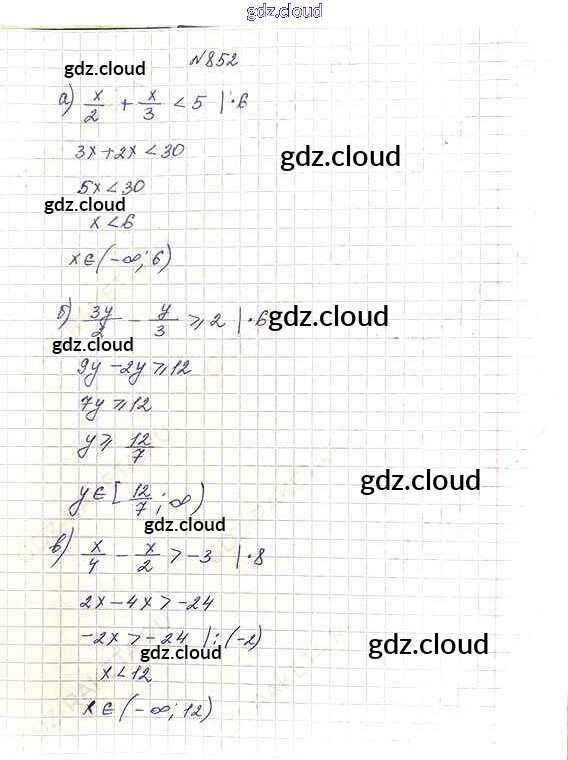 gdz.cloud
N852
gdz.cloud
а) x/2 + x/3 < 5 | · 6
gdz.cloud
3x + 2x < 30
5x < 30
gdz.cloud
gdz.cloud
x < 6
x ∈ (-∞; 6)
б) 3y/2 - y/3 ⩾ 2 | · 6
gdz.cloud
gdz.cloud
9y - 2y ⩾ 12
7y ⩾ 12
y ⩾ 12/7
gdz.cloud
y ∈ [12/7; ∞)
gdz.cloud
в) x/4 - x/2 > -3 | · 8
2x - 4x > -24
-2x > -24 | : (-2)
gdz.cloud
gdz.cloud
x < 12
x ∈ (-∞; 12)